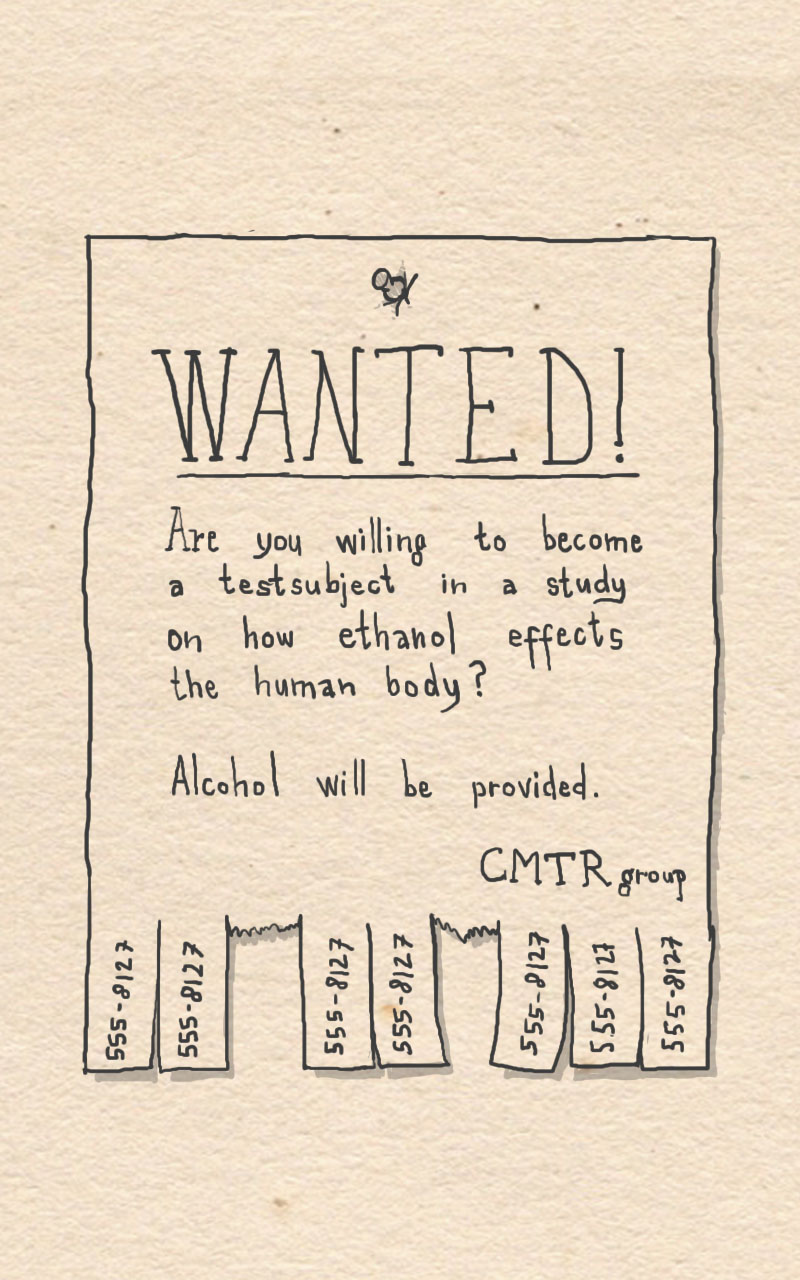 WANTED!
Are you willing to become
a testsubject in a study
on how ethanol effects
the human body?
Alcohol will be provided.
CMTR group
555-8127
555-8127
555-8127
555-8127
555-8127
555-8127
555-8127